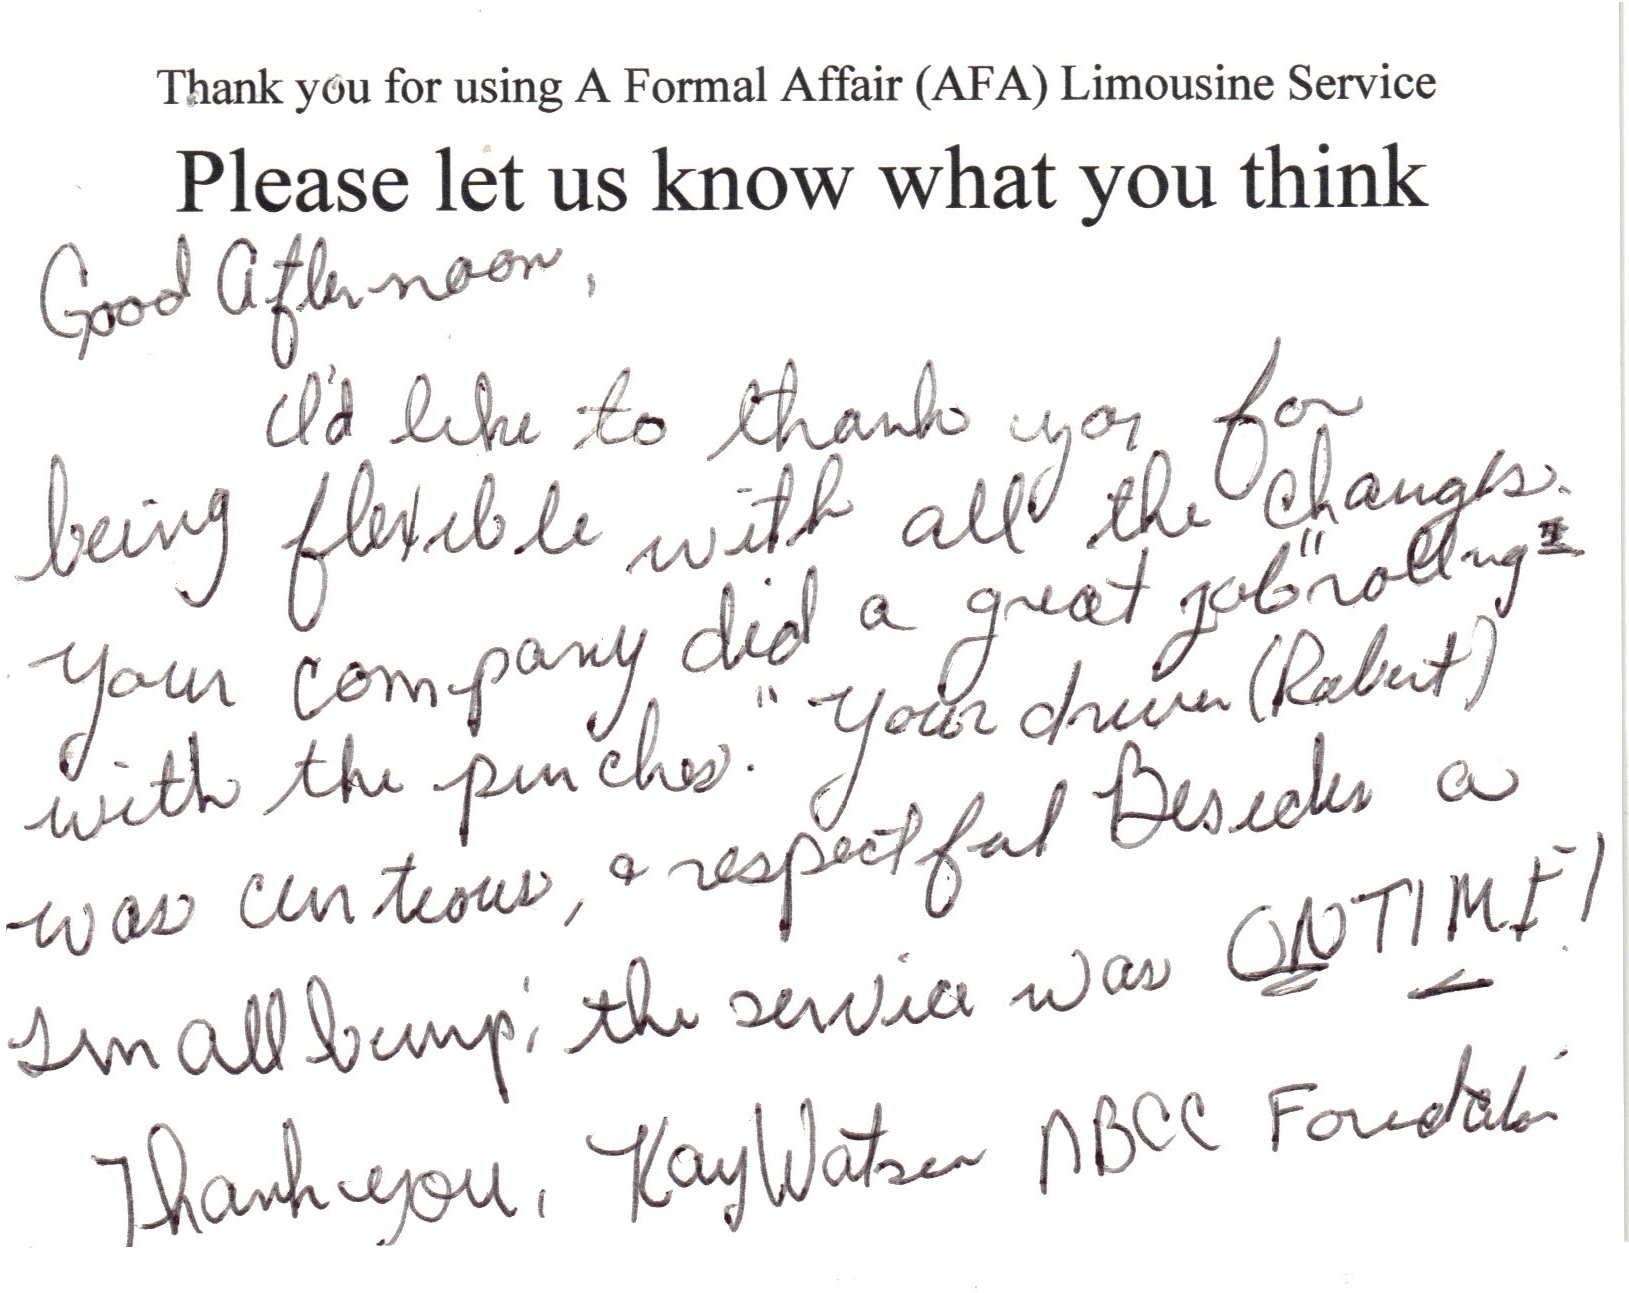 Thank you for using A Formal Affair (AFA) Limousine Service
Please let us know what you think
Good Afternoon,
I'd like to thank you for
being flexible with all the changes.
Your company did a great job "rolling
with the punches." Your driver (Robert)
was curteous, & respectful Besides a
small bump; the service was ONTIME!
Thank you, Kay Watson ABCC Foundation